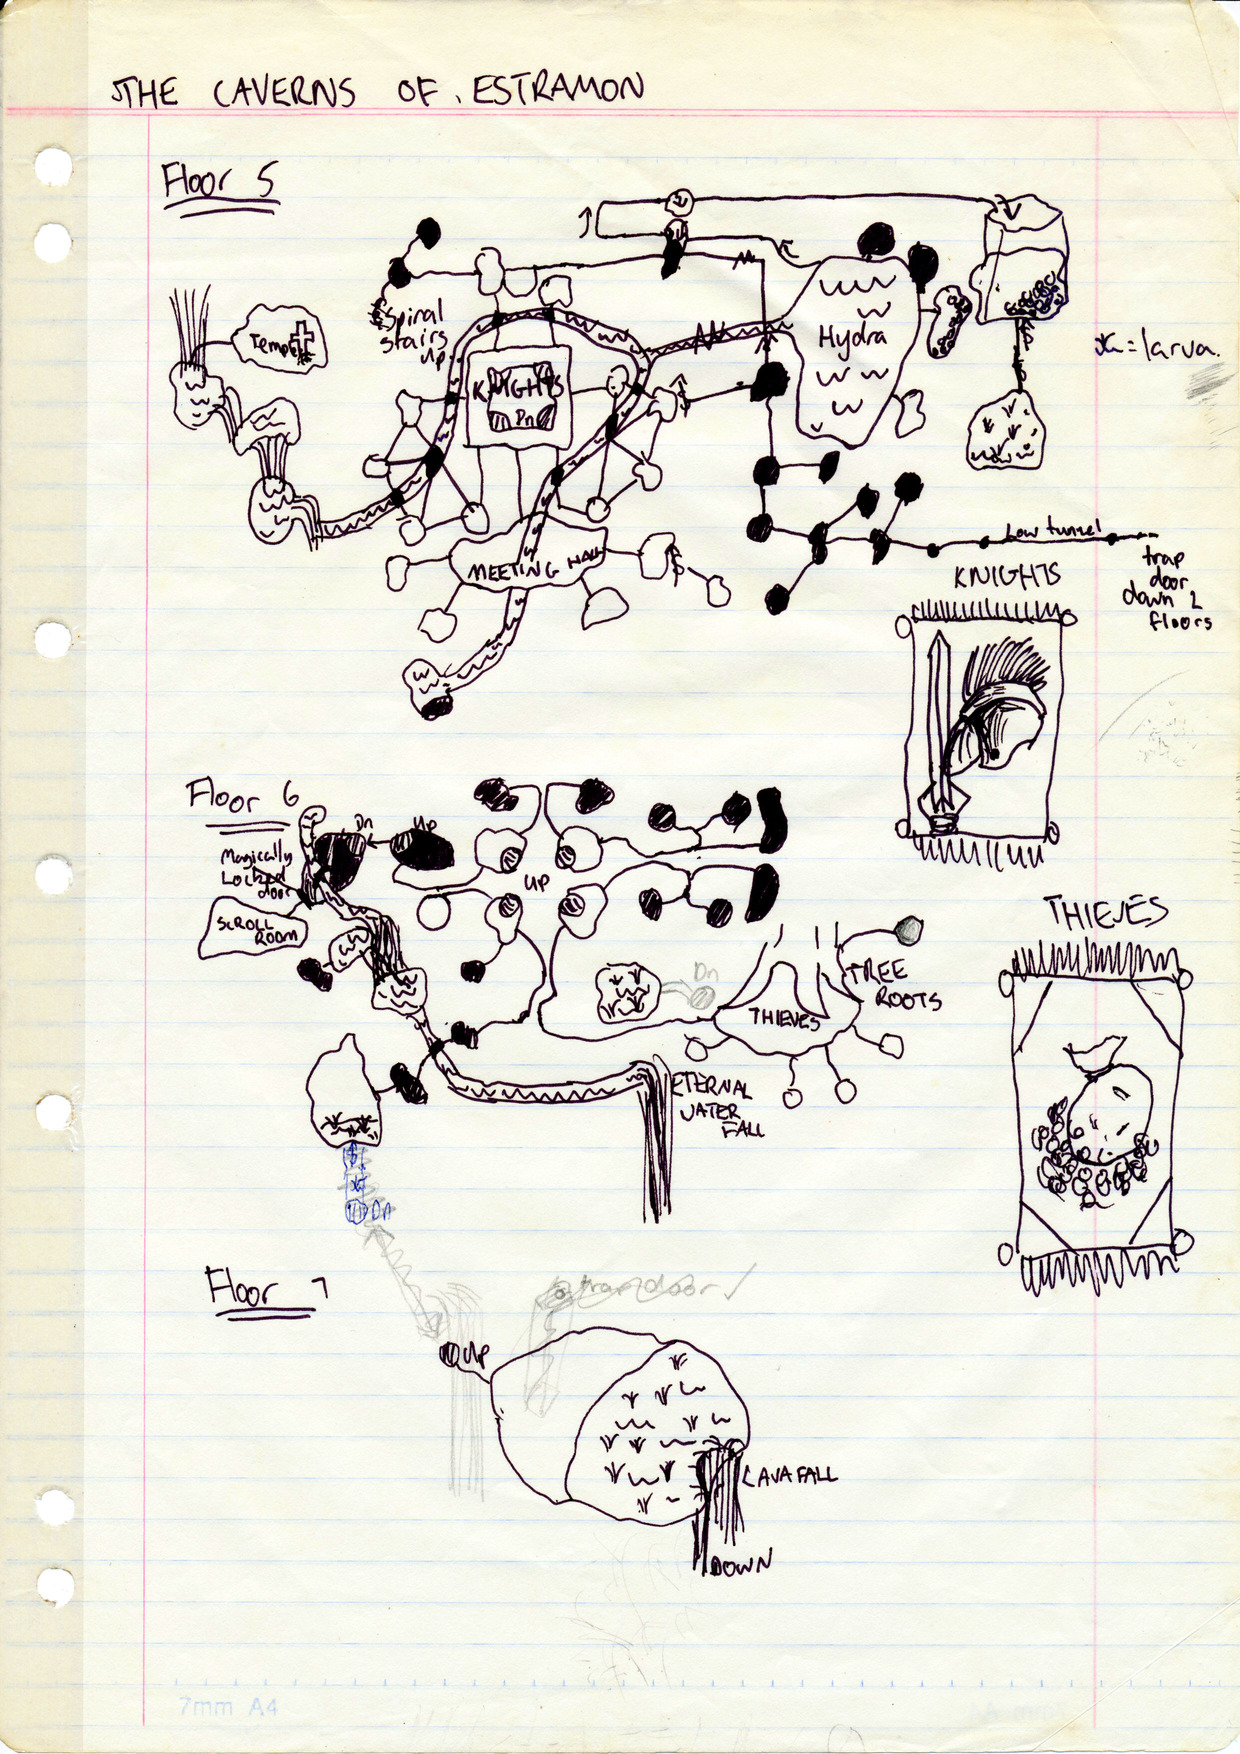 THE CAVERNS OF ESTRAMON
Floor 5
Temple
Spinal
stairs
Up
KNIGHTS
Dn
Hydra
= larva.
MEETING HALL
Low tunnel
trap
door
down 2
floors
KNIGHTS
Floor 6
Dn
Up
Magically
Locked
door
SCROLL
ROOM
UP
Dn
TREE
ROOTS
THIEVES
ETERNAL
WATER
FALL
THIEVES
Dn
Floor 7
trapdoor
Up
LAVAFALL
DOWN
7mm A4